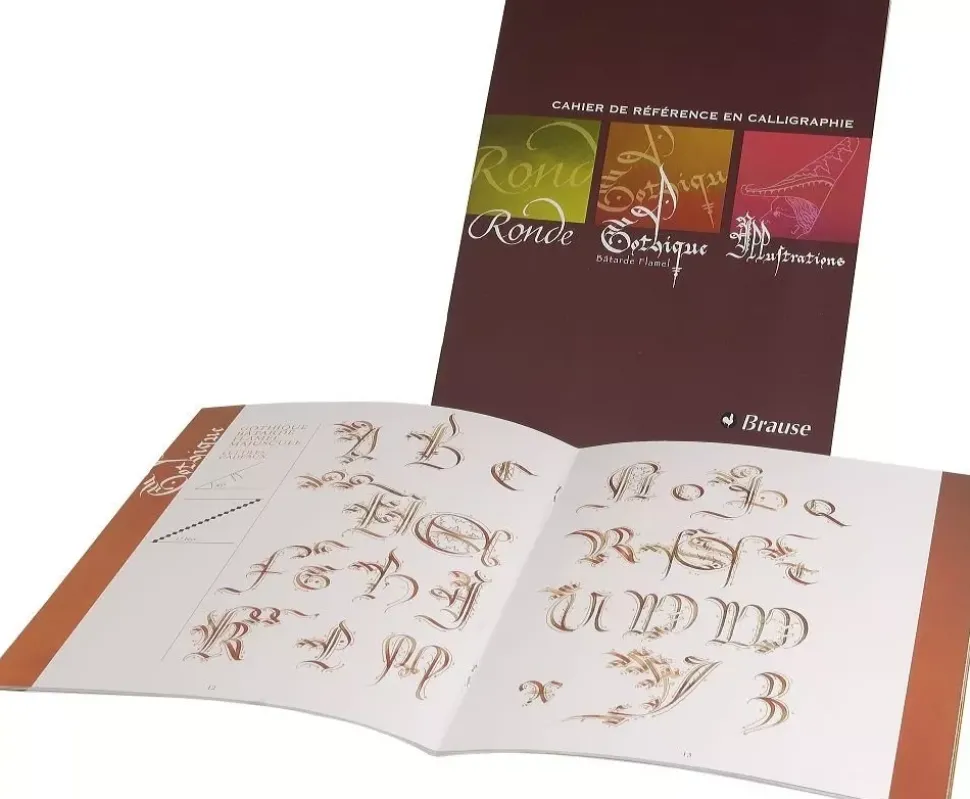 CAHIER DE RÉFÉRENCE EN CALLIGRAPHIE
Ronde
Gothique
Ronde
Gothique
Bâtarde Flamel
Illustrations
Brause
Gothique
GOTHIQUE
BÂTARDE
FLAMEL
MAJUSCULE
LETTRES
CADEAUX
A B C
D E
F G H J
K L M
N O P Q
R S T
U V W
X Y Z
12
13